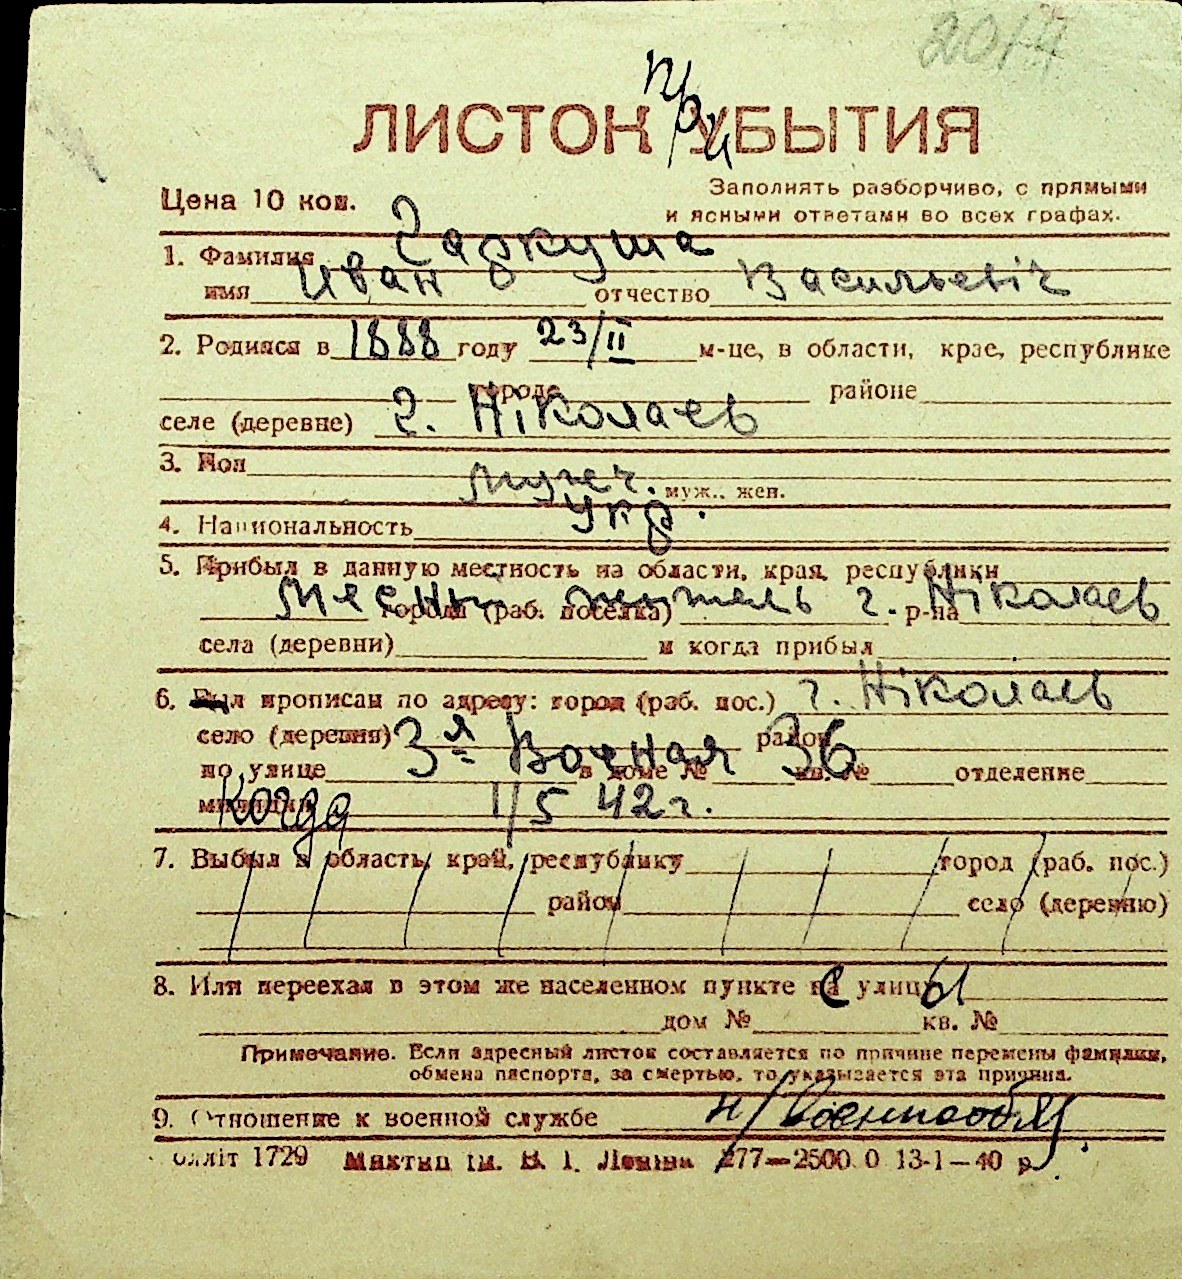 2014
при
ЛИСТОК УБЫТИЯ
Цена 10 коп.
Заполнять разборчиво, с прямыми
и ясными ответами во всех графах.
1. Фамилия Гаркуша
имя Иван отчество Васильевіч
2. Родился в 1888 году 23/II м-це, в области, крае, республике
городе районе
селе (деревне) г. Ніколаев
3. Пол мужч. муж., жен.
4. Национальность Укр.
5. Прибыл в данную местность из области, края, республики
Месный житель г. Ніколаев
города (раб. поселка) р-на
села (деревни) и когда прибыл
6. Был прописан по адресу: город (раб. пос.) г. Ніколаев
село (деревня) район
3я Воєная 36
по улице в доме № кв. № отделение
милиции Когда 1/5 42 г.
7. Выбыл в область, край, республику город (раб. пос.)
район село (деревню)
8. Или переехал в этом же населенном пункте с улицы
дом № кв. №
Примечание. Если адресный листок составляется по причине перемены фамилии,
обмена паспорта, за смертью, то указывается эта причина.
9. Отношение к военной службе н/военнообяз.
олліт 1729 Миктип ім. В. І. Леніна 277—2500.0 13-1—40 р.